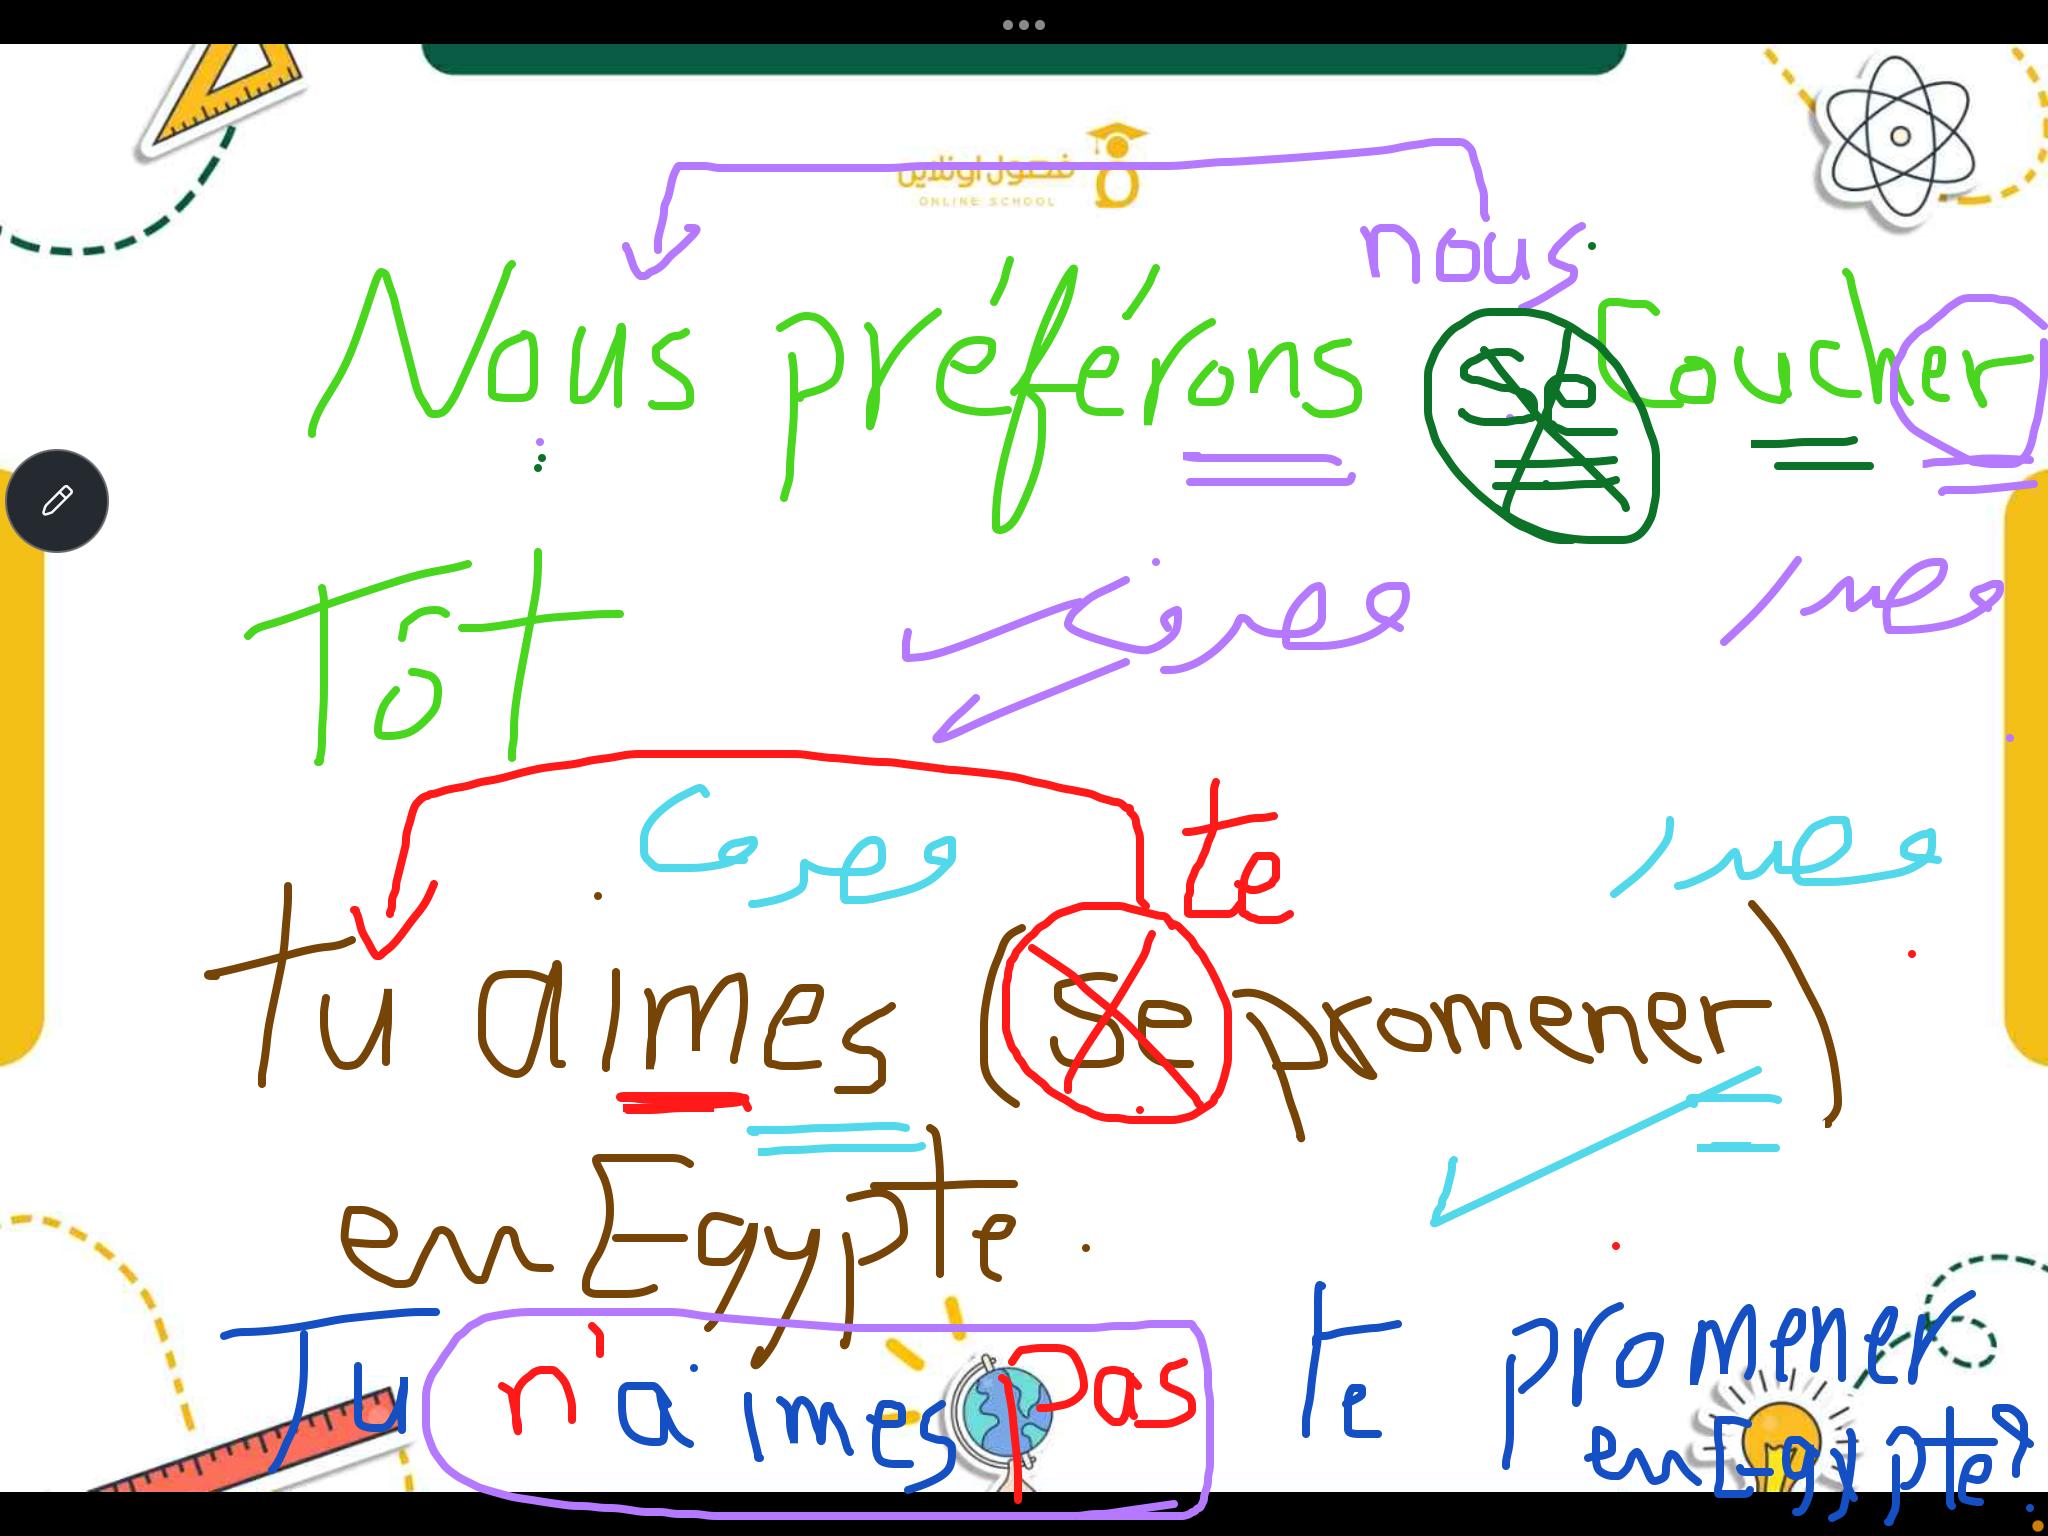 فصول اونلاين
ONLINE SCHOOL
nous
Nous préférons se Coucher
Tôt
مصرف مصدر
te
مصرف مصدر
Tu aimes (se promener)
en Egypte.
Tu n'aimes pas te promener
en Egypte?